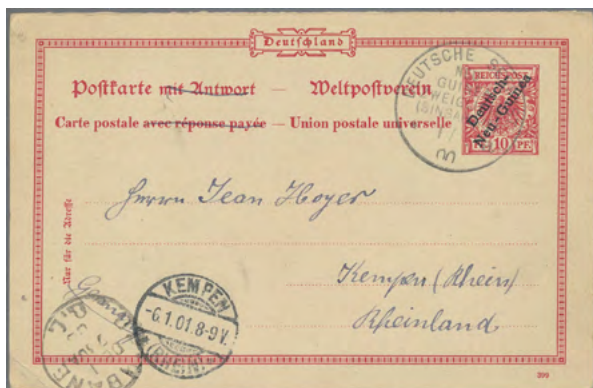 Deutschland
Postkarte mit Antwort — Weltpostverein
Carte postale avec réponse payée — Union postale universelle
REICHSPOST
Deutsch-
Neu-Guinea
10 PF.
DEUTSCHE
ZWEIG
Herrn Jean Hoyer
Nur für die Adresse
Kempen (Rhein)
Rheinland
KEMPEN
-6.1.01.8-9V.
(RHEIN)